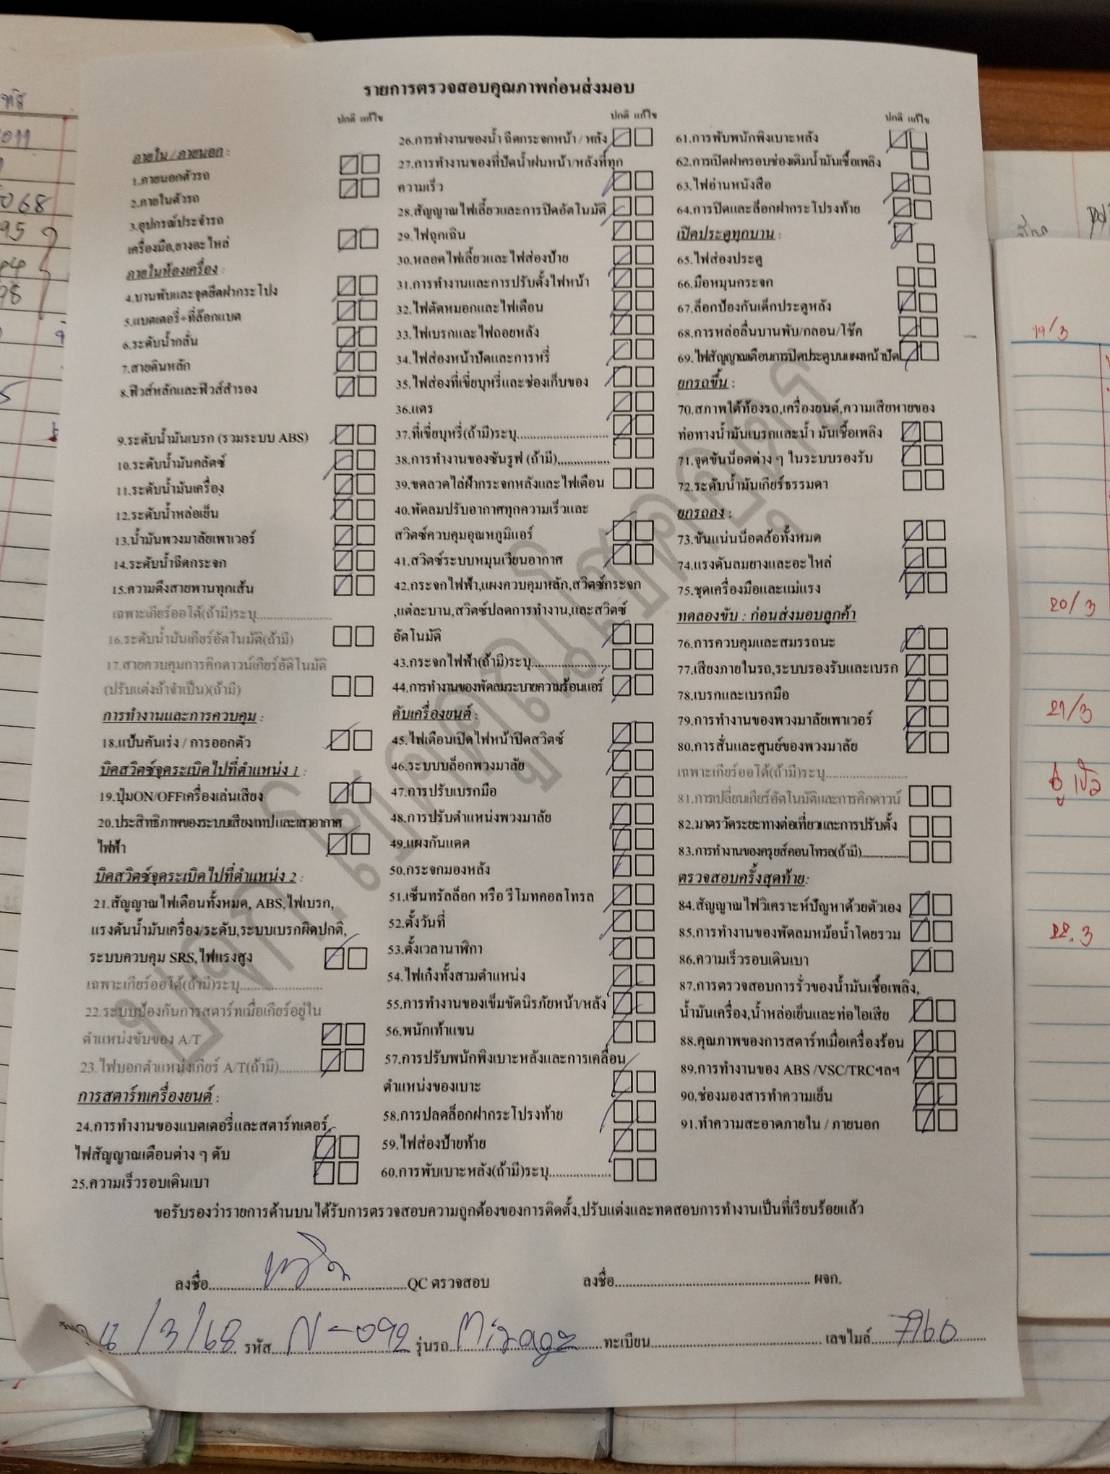 รายการตรวจสอบคุณภาพก่อนส่งมอบ
ปกติ แก้ไข
ภายใน / ภายนอก :
1.ภายนอกตัวรถ
2.ภายในตัวรถ
3.อุปกรณ์ประจำรถ
เครื่องมือ,ยางอะไหล่
ภายในห้องเครื่อง :
4.บานพับและจุดยึดฝากระโปง
5.แบตเตอรี่+ที่ล็อกแบต
6.ระดับน้ำกลั่น
7.สายดินหลัก
8.ฟิวส์หลักและฟิวส์สำรอง
9.ระดับน้ำมันเบรก (รวมระบบ ABS)
10.ระดับน้ำมันคลัตซ์
11.ระดับน้ำมันเครื่อง
12.ระดับน้ำหล่อเย็น
13.น้ำมันพวงมาลัยเพาเวอร์
14.ระดับน้ำฉีดกระจก
15.ความตึงสายพานทุกเส้น
เฉพาะเกียร์ออโต้(ถ้ามี)ระบุ....................
16.ระดับน้ำมันเกียร์อัตโนมัติ(ถ้ามี)
17.สายควบคุมการคิกดาวน์เกียร์อัติโนมัติ
(ปรับแต่งถ้าจำเป็น)(ถ้ามี)
การทำงานและการควบคุม :
18.แป้นคันเร่ง / การออกตัว
บิดสวิตซ์จุดระเบิดไปที่ตำแหน่ง 1 :
19.ปุ่มON/OFFเครื่องเล่นเสียง
20.ประสิทธิภาพของระบบเสียงเทปและเสาอากาศ
ไฟฟ้า
บิดสวิตซ์จุดระเบิดไปที่ตำแหน่ง 2 :
21.สัญญาณไฟเตือนทั้งหมด, ABS,ไฟเบรก,
แรงดันน้ำมันเครื่อง/ระดับ,ระบบเบรกผิดปกติ,
ระบบควบคุม SRS,ไฟแรงสูง
เฉพาะเกียร์ออโต้(ถ้ามี)ระบุ....................
22.ระบบป้องกันการสตาร์ทเมื่อเกียร์อยู่ใน
ตำแหน่งขับของ A/T
23.ไฟบอกตำแหน่งเกียร์ A/T(ถ้ามี)..........
การสตาร์ทเครื่องยนต์ :
24.การทำงานของแบตเตอรี่และสตาร์ทเตอร์,
ไฟสัญญาณเตือนต่าง ๆ ดับ
25.ความเร็วรอบเดินเบา
ปกติ แก้ไข
26.การทำงานของน้ำ ฉีดกระจกหน้า / หลัง
27.การทำงานของที่ปัดน้ำฝนหน้า/หลังที่ทุก
ความเร็ว
28.สัญญาณไฟเลี้ยวและการปิดอัตโนมัติ
29.ไฟฉุกเฉิน
30.หลอดไฟเลี้ยวและไฟส่องป้าย
31.การทำงานและการปรับตั้งไฟหน้า
32.ไฟตัดหมอกและไฟเตือน
33.ไฟเบรกและไฟถอยหลัง
34.ไฟส่องหน้าปัดและการหรี่
35.ไฟส่องที่เขี่ยบุหรี่และช่องเก็บของ
36.แตร
37.ที่เขี่ยบุหรี่(ถ้ามี)ระบุ..........................
38.การทำงานของซันรูฟ (ถ้ามี)...............
39.ขดลวดไล่ฝ้ากระจกหลังและไฟเตือน
40.พัดลมปรับอากาศทุกความเร็วและ
สวิตช์ควบคุมอุณหภูมิแอร์
41.สวิตช์ระบบหมุนเวียนอากาศ
42.กระจกไฟฟ้า,แผงควบคุมหลัก,สวิตช์กระจก
,แต่ละบาน,สวิตช์ปลดการทำงาน,และสวิตช์
อัตโนมัติ
43.กระจกไฟฟ้า(ถ้ามี)ระบุ......................
44.การทำงานของพัดลมระบายความร้อนแอร์
ดับเครื่องยนต์ :
45.ไฟเตือนเปิดไฟหน้าปิดสวิตช์
46.ระบบบล็อกพวงมาลัย
47.การปรับเบรกมือ
48.การปรับตำแหน่งพวงมาลัย
49.แผงกันแดด
50.กระจกมองหลัง
51.เซ็นทรัลล็อก หรือ รีโมทคอลโทรล
52.ตั้งวันที่
53.ตั้งเวลานาฬิกา
54.ไฟเก๋งทั้งสามตำแหน่ง
55.การทำงานของเข็มขัดนิรภัยหน้า/หลัง
56.พนักเท้าแขน
57.การปรับพนักพิงเบาะหลังและการเคลื่อน
ตำแหน่งของเบาะ
58.การปลดล็อกฝากระโปรงท้าย
59.ไฟส่องป้ายท้าย
60.การพับเบาะหลัง(ถ้ามี)ระบุ..................
ปกติ แก้ไข
61.การพับพนักพิงเบาะหลัง
62.การเปิดฝาครอบช่องเติมน้ำมันเชื้อเพลิง
63.ไฟอ่านหนังสือ
64.การปิดและล็อกฝากระโปรงท้าย
เปิดประตูทุกบาน :
65.ไฟส่องประตู
66.มือหมุนกระจก
67.ล็อกป้องกันเด็กประตูหลัง
68.การหล่อลื่นบานพับ/กลอน/โช๊ค
69.ไฟสัญญาณเตือนการปิดประตูบนแผงหน้าปัด
ยกรถขึ้น :
70.สภาพใต้ท้องรถ,เครื่องยนต์,ความเสียหายของ
ท่อทางน้ำมันเบรกและน้ำ มันเชื้อเพลิง
71.จุดขันน็อตต่าง ๆ ในระบบรองรับ
72.ระดับน้ำมันเกียร์ธรรมดา
ยกรถลง :
73.ขันแน่นน็อตล้อทั้งหมด
74.แรงดันลมยางและอะไหล่
75.ชุดเครื่องมือและแม่แรง
ทดลองขับ : ก่อนส่งมอบลูกค้า
76.การควบคุมและสมรรถนะ
77.เสียงภายในรถ,ระบบรองรับและเบรก
78.เบรกและเบรกมือ
79.การทำงานของพวงมาลัยเพาเวอร์
80.การสั่นและศูนย์ของพวงมาลัย
เฉพาะเกียร์ออโต้(ถ้ามี)ระบุ......................
81.การเปลี่ยนเกียร์อัตโนมัติและการคิกดาวน์
82.มาตรวัดระยะทางต่อเที่ยวและการปรับตั้ง
83.การทำงานของครุยส์คอนโทรล(ถ้ามี)............
ตรวจสอบครั้งสุดท้าย:
84.สัญญาณไฟวิเคราะห์ปัญหาด้วยตัวเอง
85.การทำงานของพัดลมหม้อน้ำโดยรวม
86.ความเร็วรอบเดินเบา
87.การตรวจสอบการรั่วของน้ำมันเชื้อเพลิง,
น้ำมันเครื่อง,น้ำหล่อเย็นและท่อไอเสีย
88.คุณภาพของการสตาร์ทเมื่อเครื่องร้อน
89.การทำงานของ ABS /VSC/TRCฯลฯ
90.ช่องมองสารทำความเย็น
91.ทำความสะอาดภายใน / ภายนอก
ขอรับรองว่ารายการด้านบนได้รับการตรวจสอบความถูกต้องของการติดตั้ง,ปรับแต่งและทดสอบการทำงานเป็นที่เรียบร้อยแล้ว
ลงชื่อ..................................QC ตรวจสอบ ลงชื่อ.................................. ผจก.
/3/68 รหัส N-092 รุ่นรถ Mirage ทะเบียน.................................. เลขไมล์ 7960
19/3
20/3
21/3
22.3